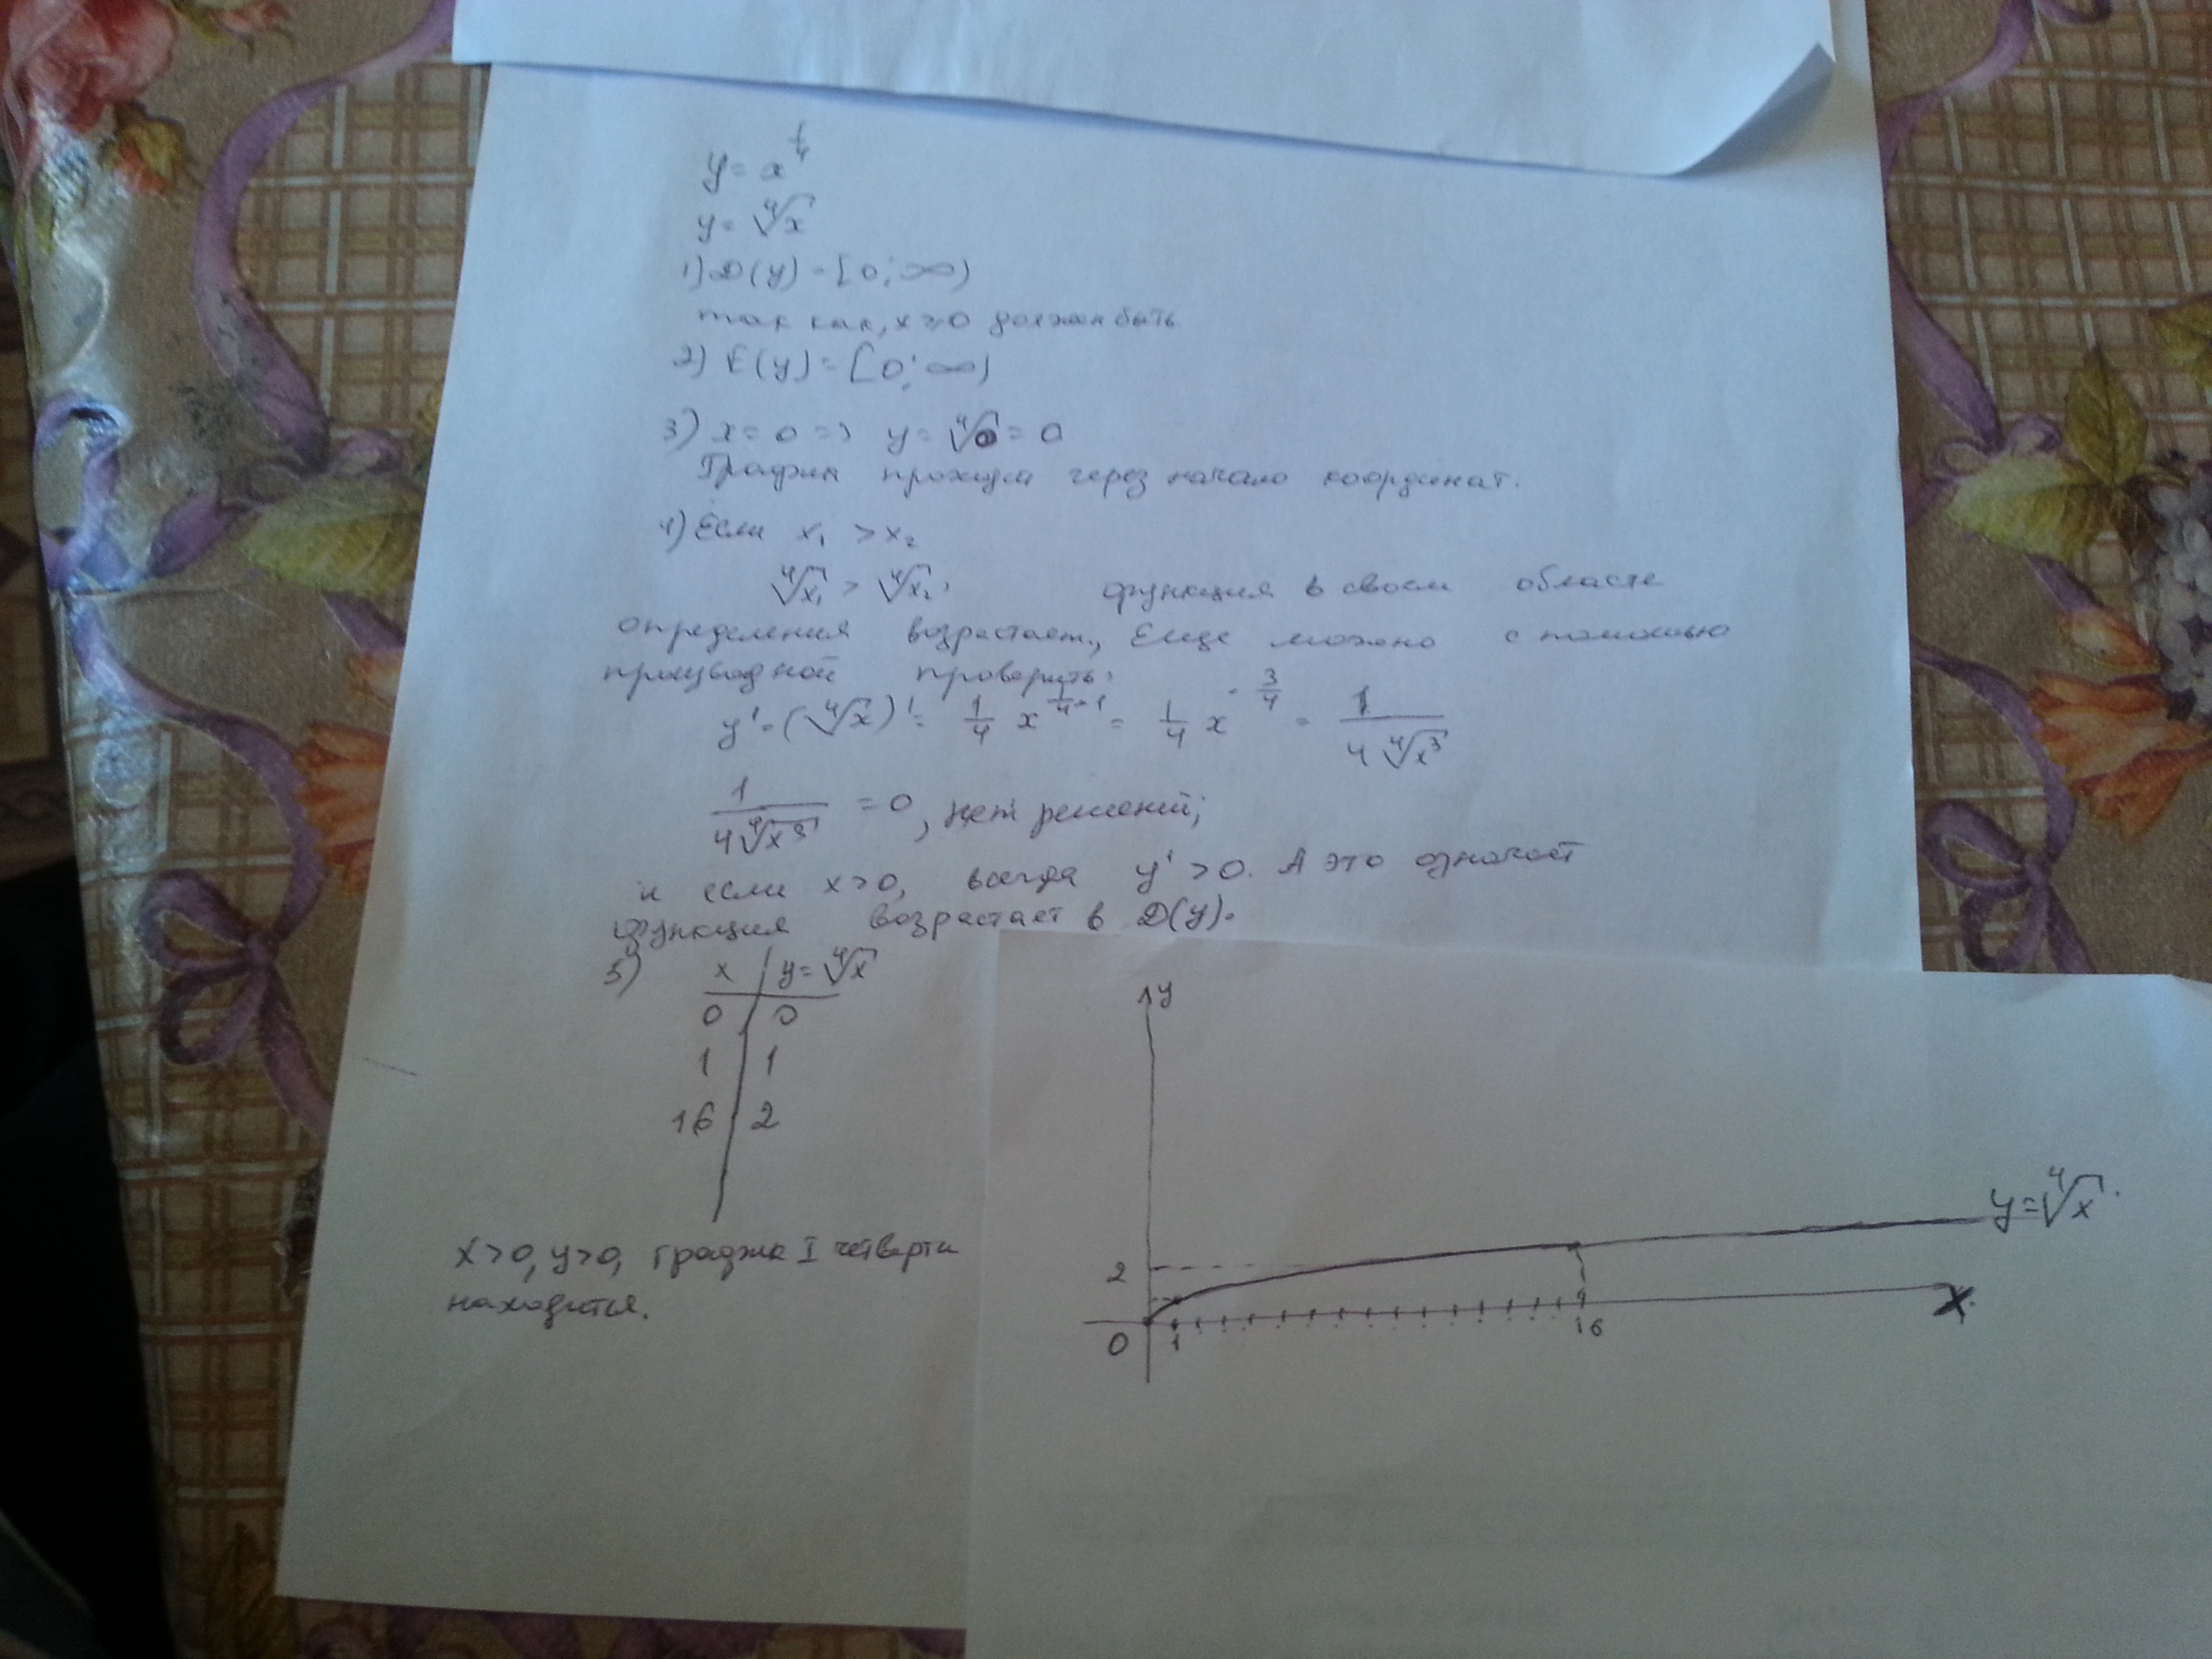 y = x^{1/4}
y = ∜x
1) D(y) = [0; ∞)
так как, x ≥ 0 должен быть
2) E(y) = [0; ∞)
3) x = 0 => y = ∜0 = 0
График проходит через начало координат.
4) Если x₁ > x₂
∜x₁ > ∜x₂, функция в своем области
определения возрастает., Еще можно с помошью
производной проверить.
y' = (∜x)' = 1/4 x^{1/4 - 1} = 1/4 x^{-3/4} = 1/(4∜x³)
1/(4∜x³) = 0, нет решений;
и если x>0, всегда y' >0. А это означает
функция возрастает в D(y).
5) x | y = ∜x
0 | 0
1 | 1
16 | 2
x>0, y>0, график I четверти
находится.
y
y = ∜x.
2
x
0 1 16